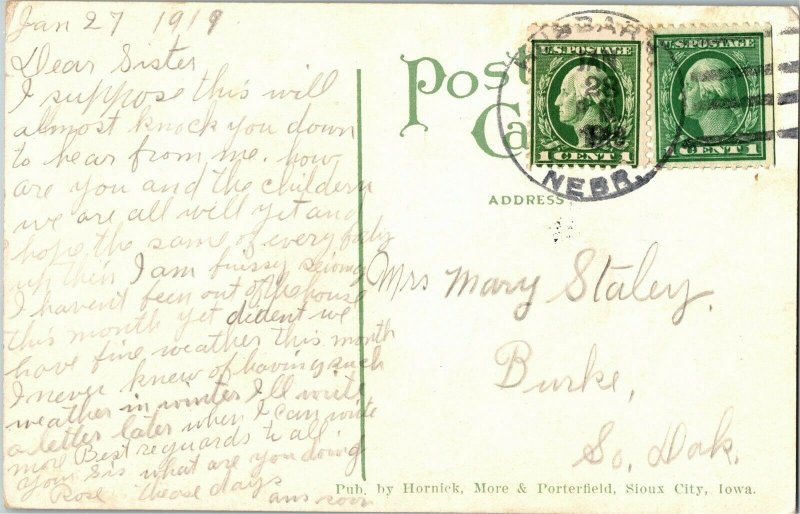 Jan 27 1919
Dear Sister
I suppose this will
almost knock you down
to hear from me. how
are you and the childern
we are all well yet and
hope the same of everybody
up their I am buissy
I havent been out of the house
this month yet dident we
have fine weather this month
I never knew of having such
weather in winter Ill write
a letter later when I can write
more Best reguards to all
your Sis what are you doing
Rose these days
ans soon
Post
Ca
ADDRESS
U.S.POSTAGE
1 CENT 1
U.S.POSTAGE
CENT 1
28
NEBR.
Mrs Mary Staley.
Burke,
So, Dak.
Pub. by Hornick, More & Porterfield, Sioux City, Iowa.